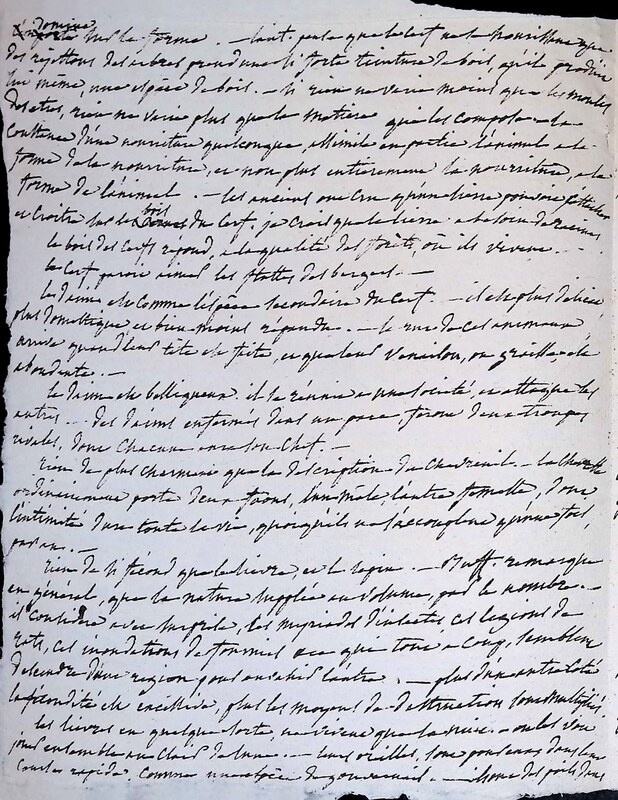 domine
sur la forme. — tout. parce que le cerf ne se nourrissant que
des rejettons des arbres prend une si forte teinture de bois, qu'il produit
lui même, une espèce de bois. — si rien ne varie moins que les moules
des etres, rien ne varie plus que la matiere qui les compose — la
d'une nourriture quelconque, assimile en partie l'animal a la
forme de la nourriture, et non plus entierement la nourriture, a la
forme de l'animal. — les anciens ont cru qu'un lierre pouvoit s'attacher
et croitre sur le bois du cerf, je crois que le lierre a besoin de racines.
le bois des cerfs repond, a la qualité des forêts, où ils vivent. —
le cerf paroit aimer les flûttes des bergers. —
le daim est comme l'espèce secondaire du cerf. — il est plus délicat
plus domestique et bien moins répandu. — le rut de ces animaux
arrive quand leur tête est faite, et que leur venaison, ou graisse, est
abondante. —
le daim est belliqueux. il se réunit a une société, et attaque les
autres. — des daims enfermés dans un parc, forment deux troupes
rivales, dont chacune a son chef. —
rien de plus charmant que la description du chevreuil. — la chevrette
ordinairement porte deux faons, l'un male, l'autre femelle, dont
l'intimité dure toute la vie, quoiqu'ils ne s'accouplent qu'une fois
par an. —
rien de si fécond que le lievre, et le lapin. — Buff. remarque
en général, que la nature supplée au volume, par le nombre. —
il considere avec surprise, les myriades d'insectes ces legions de
rats, ces inondations de fourmis que tout a coup, semblent
descendre d'une region pour envahir l'autre. — plus d'un autre coté
la fécondité est excessive, plus les moyens de destruction sont multipliés.
les lievres en quelque sorte, ne vivent que la nuit. on les voit
jouer ensemble au clair de lune. — leurs oreilles, sont pendant
course rapide, comme une espèce de gouvernail. — ils ont des poils dans